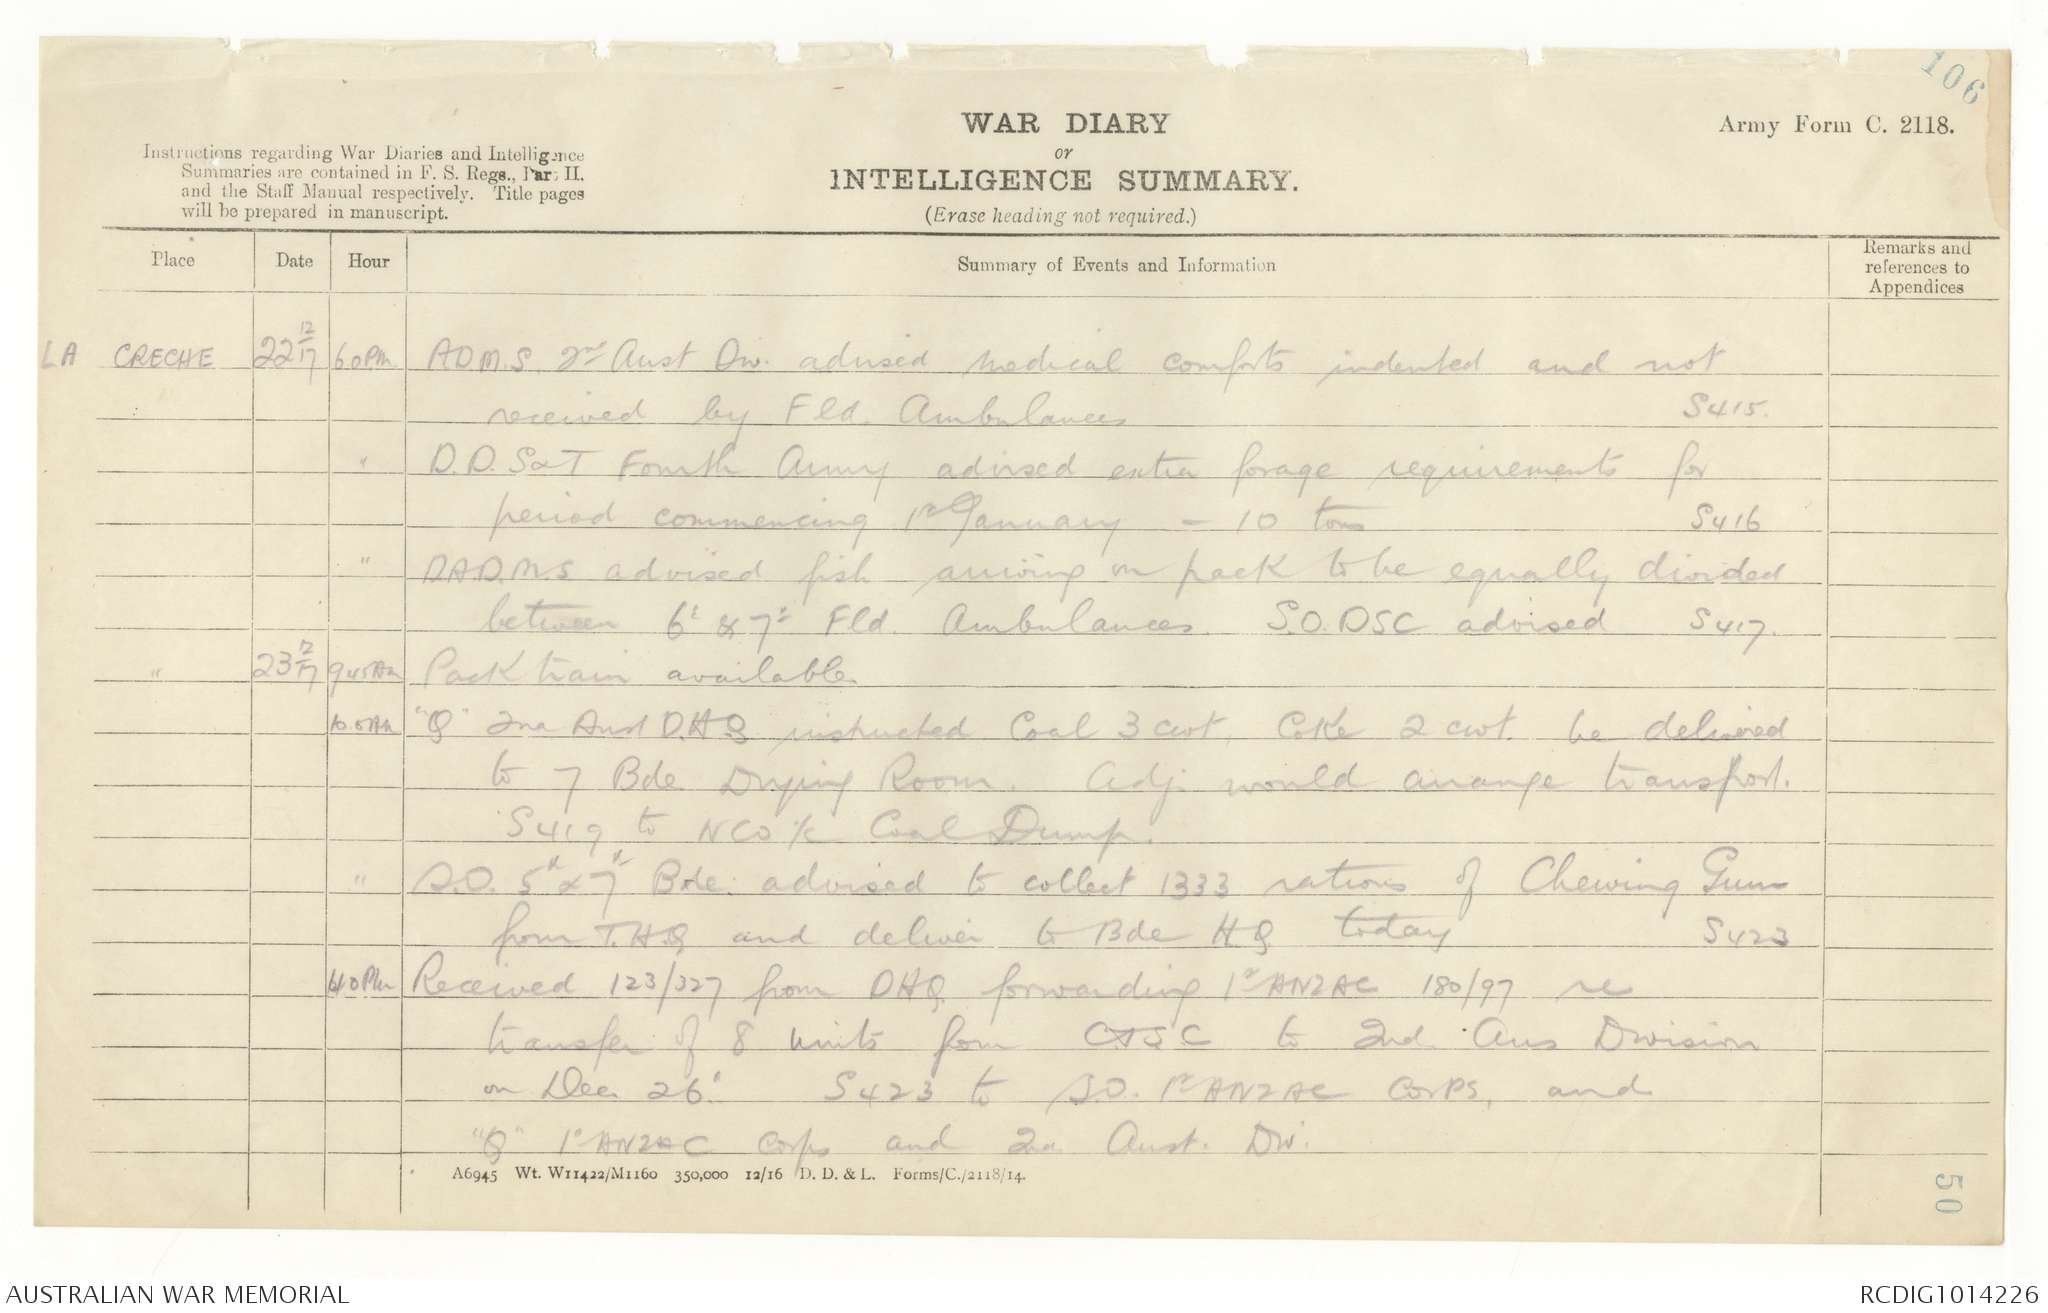 106
WAR DIARY
or
INTELLIGENCE SUMMARY.
(Erase heading not required.)
Army Form C. 2118.
Instructions regarding War Diaries and Intelligence
Summaries are contained in F. S. Regs., Part II.
and the Staff Manual respectively. Title pages
will be prepared in manuscript.
Place Date Hour Summary of Events and Information Remarks and
references to
Appendices
LA CRECHE 22 12/17 6.0 PM A.D.M.S. 2nd Aust Div. advised medical comforts indented and not
received by Fld. Ambulances S415.
" D.D.S&T Fourth Army advised extra forage requirements for
period commencing 1st January - 10 tons S416
" DADMS advised fish arriving on pack to be equally divided
between 6th & 7th Fld. Ambulances. S.O. DSC advised S417.
" 23 12/17 9 45 AM Pack train available.
10.0 AM "Q" 2nd Aust D.H.Q instructed Coal 3 cwt. Coke 2 cwt. be delivered
to 7 Bde Drying Room. Adj. would arrange transport.
S419 to NCO i/c Coal Dump.
" S.O. 5th & 7th Bde. advised to collect 1333 rations of Chewing Gum
from T.H.Q and deliver to Bde HQ today S423
4.0 PM Received 123/327 from DHQ forwarding 1st ANZAC 180/97 re
transfer of 8 units from to 2nd Aus Division
on Dec. 26th. S423 to S.O. 1st ANZAC Corps, and
"Q" 1st ANZAC Corps and 2nd Aust. Div.
A6945 Wt. W11422/M1160 350,000 12/16 D. D. & L. Forms/C./2118/14.
50
AUSTRALIAN WAR MEMORIAL
RCDIG1014226